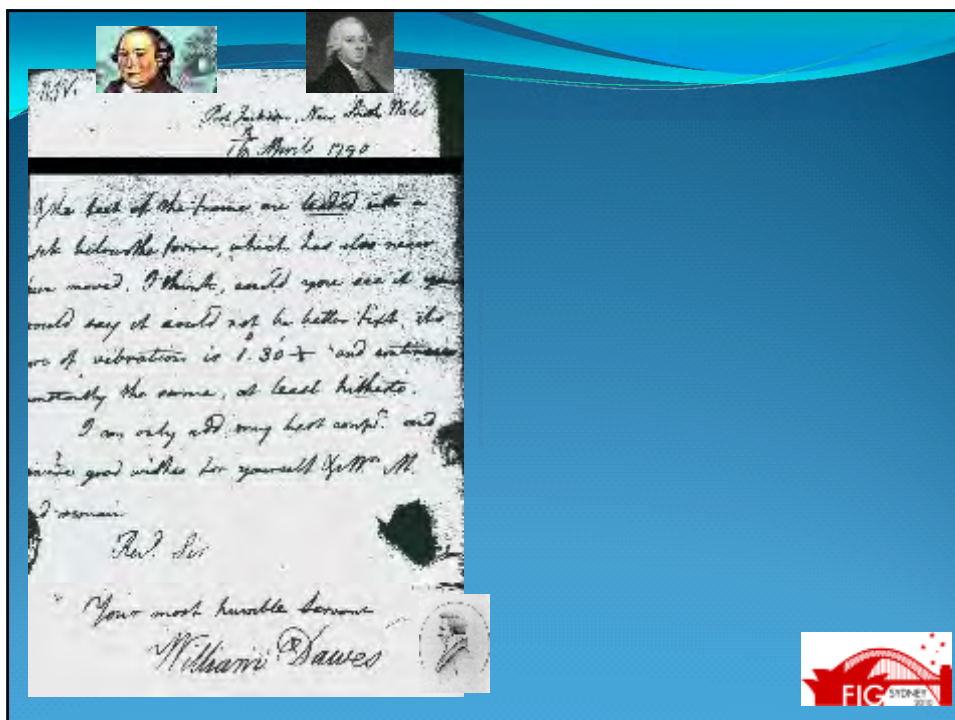 Port Jackson, New South Wales
16 April 1790
& the feet of the frame are leaded into a
below the former, which has also never
moved. I think, could you see it you
would say it could not be better fixt, its
arc of vibration is 1°.30' and continues
constantly the same, at least hitherto.
I can only add my best compts. and
sincere good wishes for yourself & Mrs. M.
remain
Revd. Sir
Your most humble Servant
William Dawes
FIG SYDNEY
2010